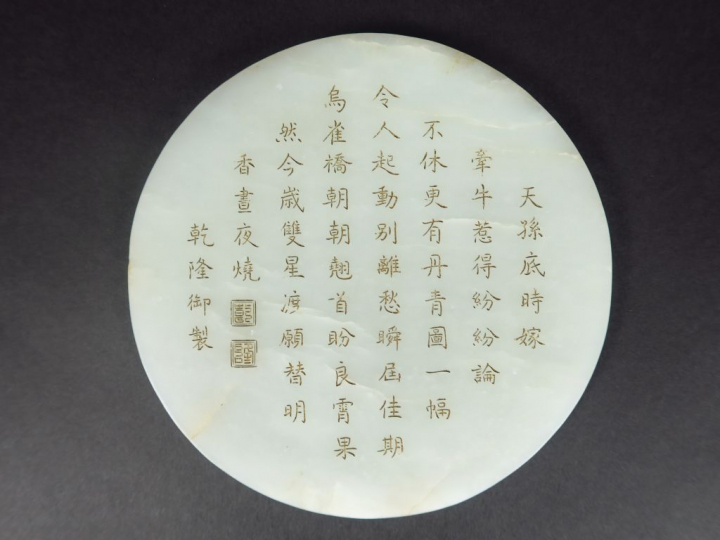 天孫底時嫁
牽牛惹得紛紛論
不休更有丹青圖一幅
令人起動別離愁瞬屆佳期
烏雀橋朝朝翹首盼良霄果
然今歲雙星渡願替明
香晝夜燒
乾隆御製